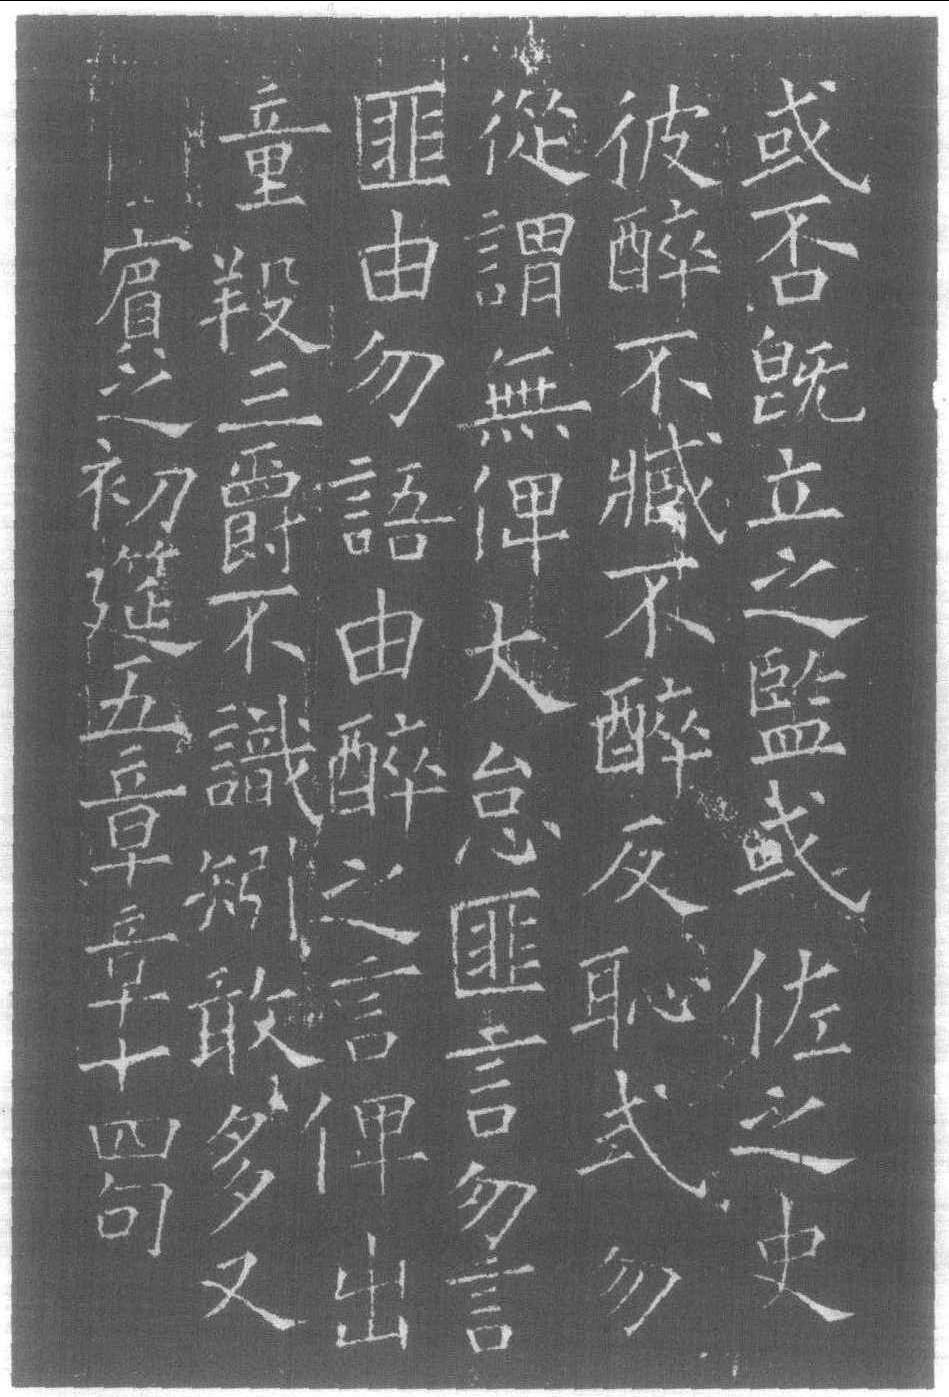 或否既立之監或佐之史
彼醉不臧不醉反恥式勿
從謂無俾大怠匪言勿言
匪由勿語由醉之言俾出
童羖三爵不識矧敢多又
賓之初筵五章章十四句